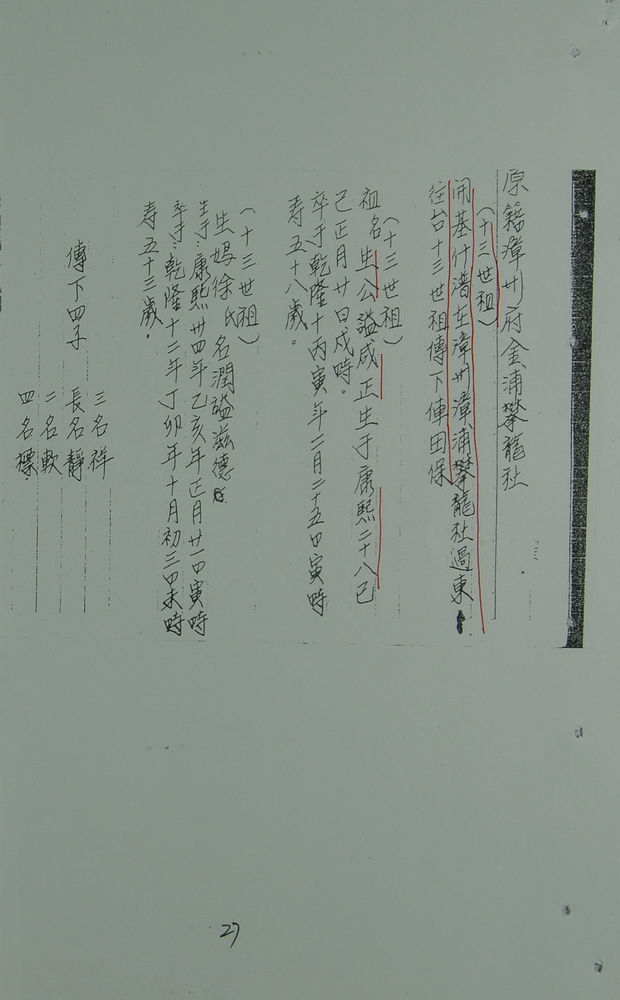 原籍漳州府金浦攀龍社
(十三世祖)
開基什漕在漳州漳浦攀龍社過東
往台十三世祖傳下俥田保
(十三世祖)
祖名生公謚咸正生于康熙二十八己
己正月廿日戍時。
卒于乾隆十丙寅年二月二十五日寅時
寿五十八歲。
(十三世祖)
生媽徐氏名潤謚滋德
生于:康熙卅四年乙亥年正月廿一日寅時
卒于:乾隆十二年丁卯年十月初三日未時
寿五十三歲.
傳下四子
三名祥
長名靜
二名軟
四名標
27